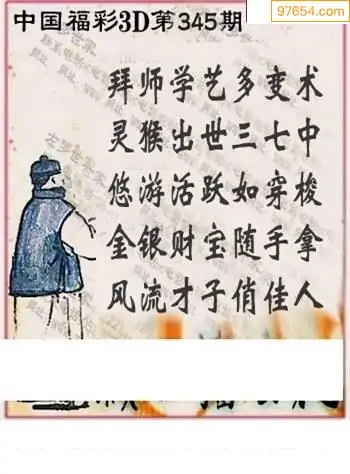 97654.com
中国福彩3D第345期
拜师学艺多变术
灵猴出世三七中
悠游活跃如穿梭
金银财宝随手拿
风流才子俏佳人